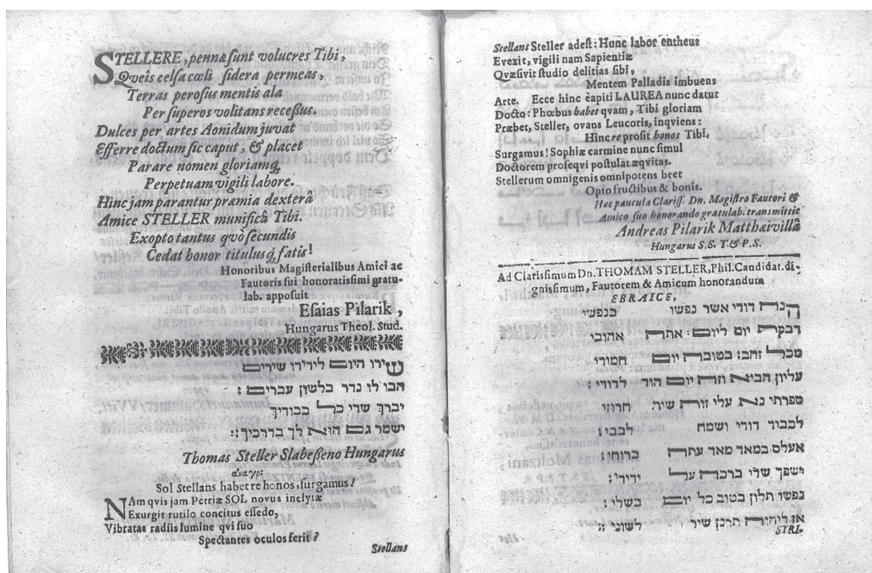 STELLERE, pennæ sunt volucres Tibi,
Qveis celsa cœli sidera permeas,
Terras perosus mentis ala
Per superos volitans recessus.
Dulces per artes Aonidum juvat
Efferre doctum sic caput, & placet
Parare nomen gloriamq;
Perpetuam vigili labore.
Hinc jam parantur præmia dexterâ
Amice STELLER munificâ Tibi.
Exopto tantus qvò secundis
Cedat honor titulusq; fatis!
Honoribus Magisterialibus Amici ac
Fautoris sui honoratisimi gratu-
lab. apposuit
Esaias Pilarik,
Hungarus Theol. Stud.
שירו היום לידידו שירים
הבו לו נדר בלשון עברים:
יברך שדי כל כבודיך
ישמר גם הוא לך בדרכיך:
Thomas Steller Slabeßeno Hungarus
ἀναγρ:
Sol Stellans habet re honos, surgamus!
NAm qvis jam Petriæ SOL novus inclytæ
Exurgit rutilo concitus essedo,
Vibratas radiis lumine qvi suo
Spectantes oculos ferit?
Stellans
Stellans Steller adest: Hunc labor entheus
Evexit, vigili nam Sapientiæ
Qvæsivit studio delitias sibi,
Mentem Palladis imbuens
Arte. Ecce hinc capiti LAUREA nunc datur
Docto: Phœbus habet qvam, Tibi gloriam
Præbet, Steller, ovans Leucoris, inqviens:
Hinc re prosit honos Tibi,
Surgamus! Sophiæ carmine nunc simul
Doctorem proseqvi postulat æqvitas.
Stellerum omnigenis omnipotens beet
Opto fructibus & bonis.
Hæc paucula Clariss. Dn. Magistro Fautori &
Amico suo honorando gratulab. transmittit
Andreas Pilarik Matthæivillâ
Hungarus S.S. T. & P. S.
Ad Clarissimum Dn. THOMAM STELLER, Phil. Candidat. di-
gnissimum, Fautorem & Amicum honorandum
EBRAICE,
הנה דודי אשר נפשו בנפשי
דבקה יום ליום: אתה אהובי
מכל זהב: בטובה יום חמודי
עליון הביא וזה יום הוד לדודי:
ספרתי נא עלי זורה שיר חרוזי
לכבוד דודי ושמח לבבי:
אעלס במאד מאד עתה ברוחי:
ישפך שדי ברכה על ידידי:
נפשו תלון בטוב כל יום בשלי:
אז ליהוה תרנן שיר לשוני:
SYRI.